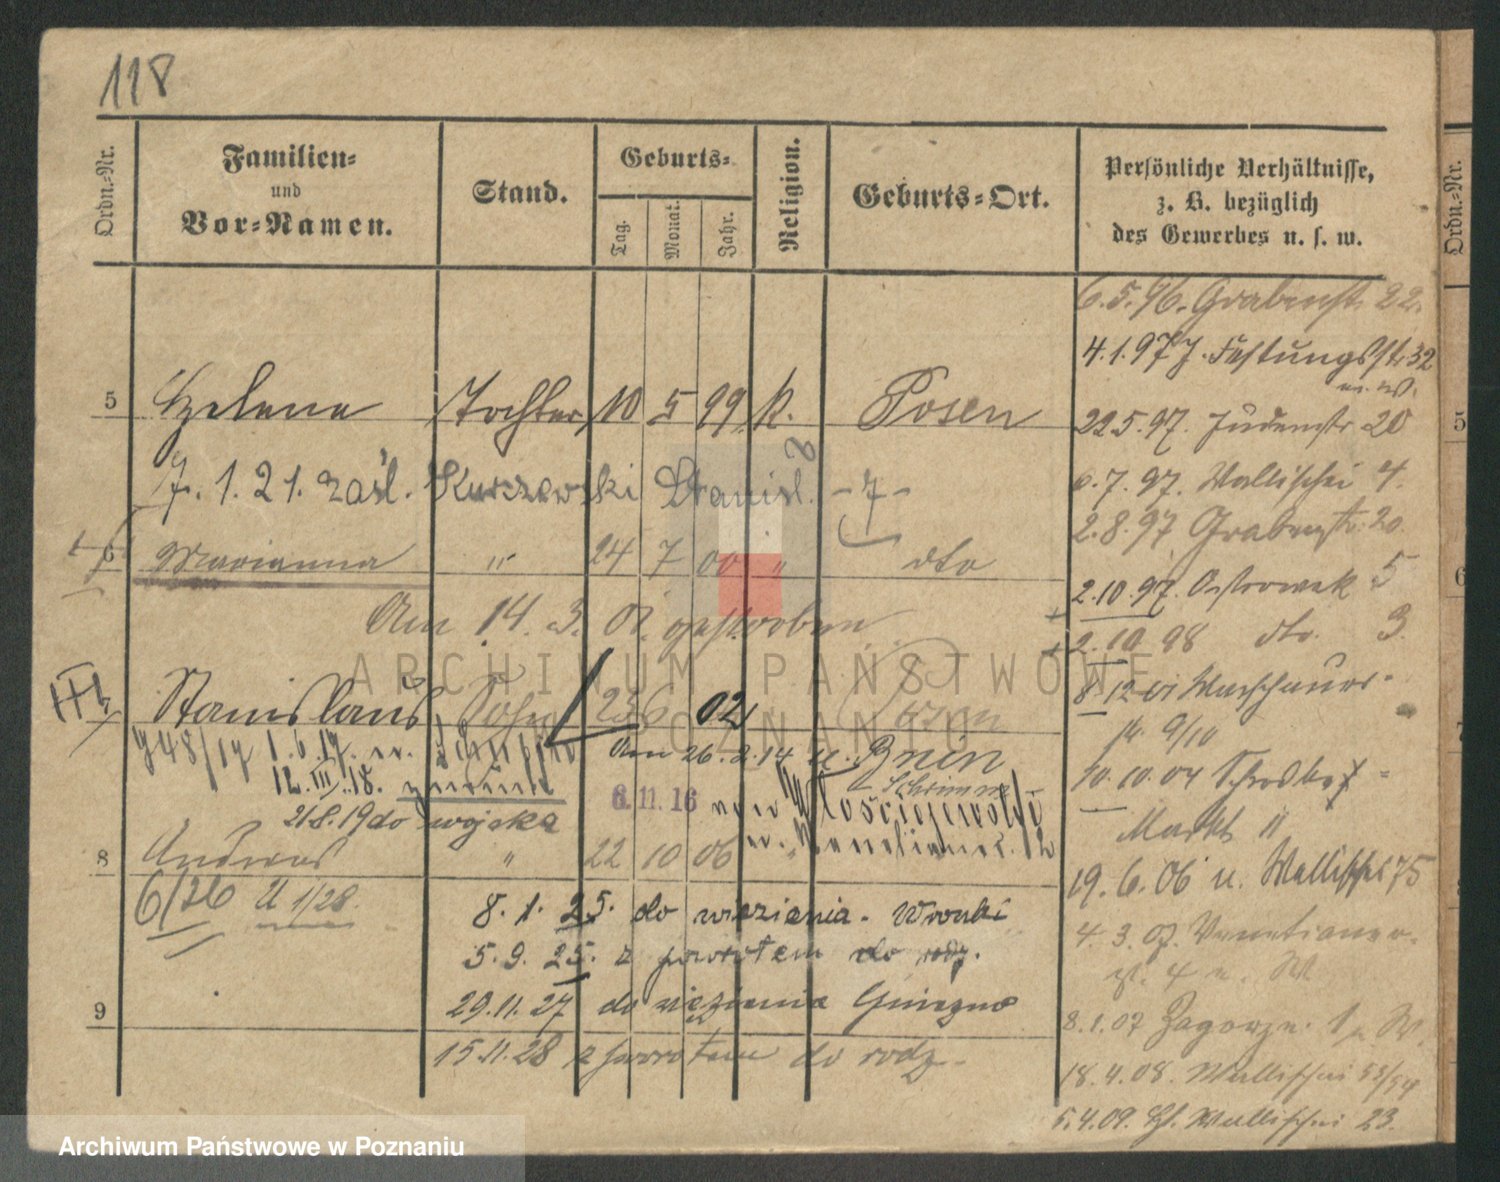 118
Ordn.-Nr.
Familien-
und
Vor-Namen.
Stand.
Geburts-
Tag.
Monat.
Jahr.
Religion.
Geburts-Ort.
Persönliche Verhältnisse,
z. B. bezüglich
des Gewerbes u. s. w.
Ordn.-Nr.
5 Helene Tochter 10 5 99 k. Posen
7. 1. 21. zaśl. Kurzawski Stanisl.
6 Marianna " 24 7 00 " dto
Am 14. 3. 01. gestorben
7 Stanislaus Sohn 23 6 02 Posen
1. 6. 17.
Am 26. 2. 14 u. Bnin
Schrimm
12. III. 18.
6.11.16
21.8.19 do wojska
8 Andreas " 22 10 06 "
6/26 U 1/28.
8. 1. 25. do więzienia. Wronki
5. 9. 25. z powrotem do rodz.
9
29.11.27 do więzienia Gniezno
15.11.28 z powrotem do rodz.
6.5.96. Grabenst. 22.
4.1.97 Festungsstr. 32
22.5.97. Judenstr. 20
6.7.97. Wallischei 4.
2.8.97 Grabenstr. 20
2.10.97. Ostrowek 5
2.10.98 dto. 3.
8 12 01 Warschauer-
9/10
10.10.04 Schrodka-
Markt 11
19. 6. 06 u. Wallischei 75
4. 3. 07. Venetianer-
8.1.07 Zagorze.
18.4.08. Wallischei 53/54
5.4.09. Wallischei 23.
5
6
ARCHIWUM PAŃSTWOWE
W POZNANIU
Archiwum Państwowe w Poznaniu